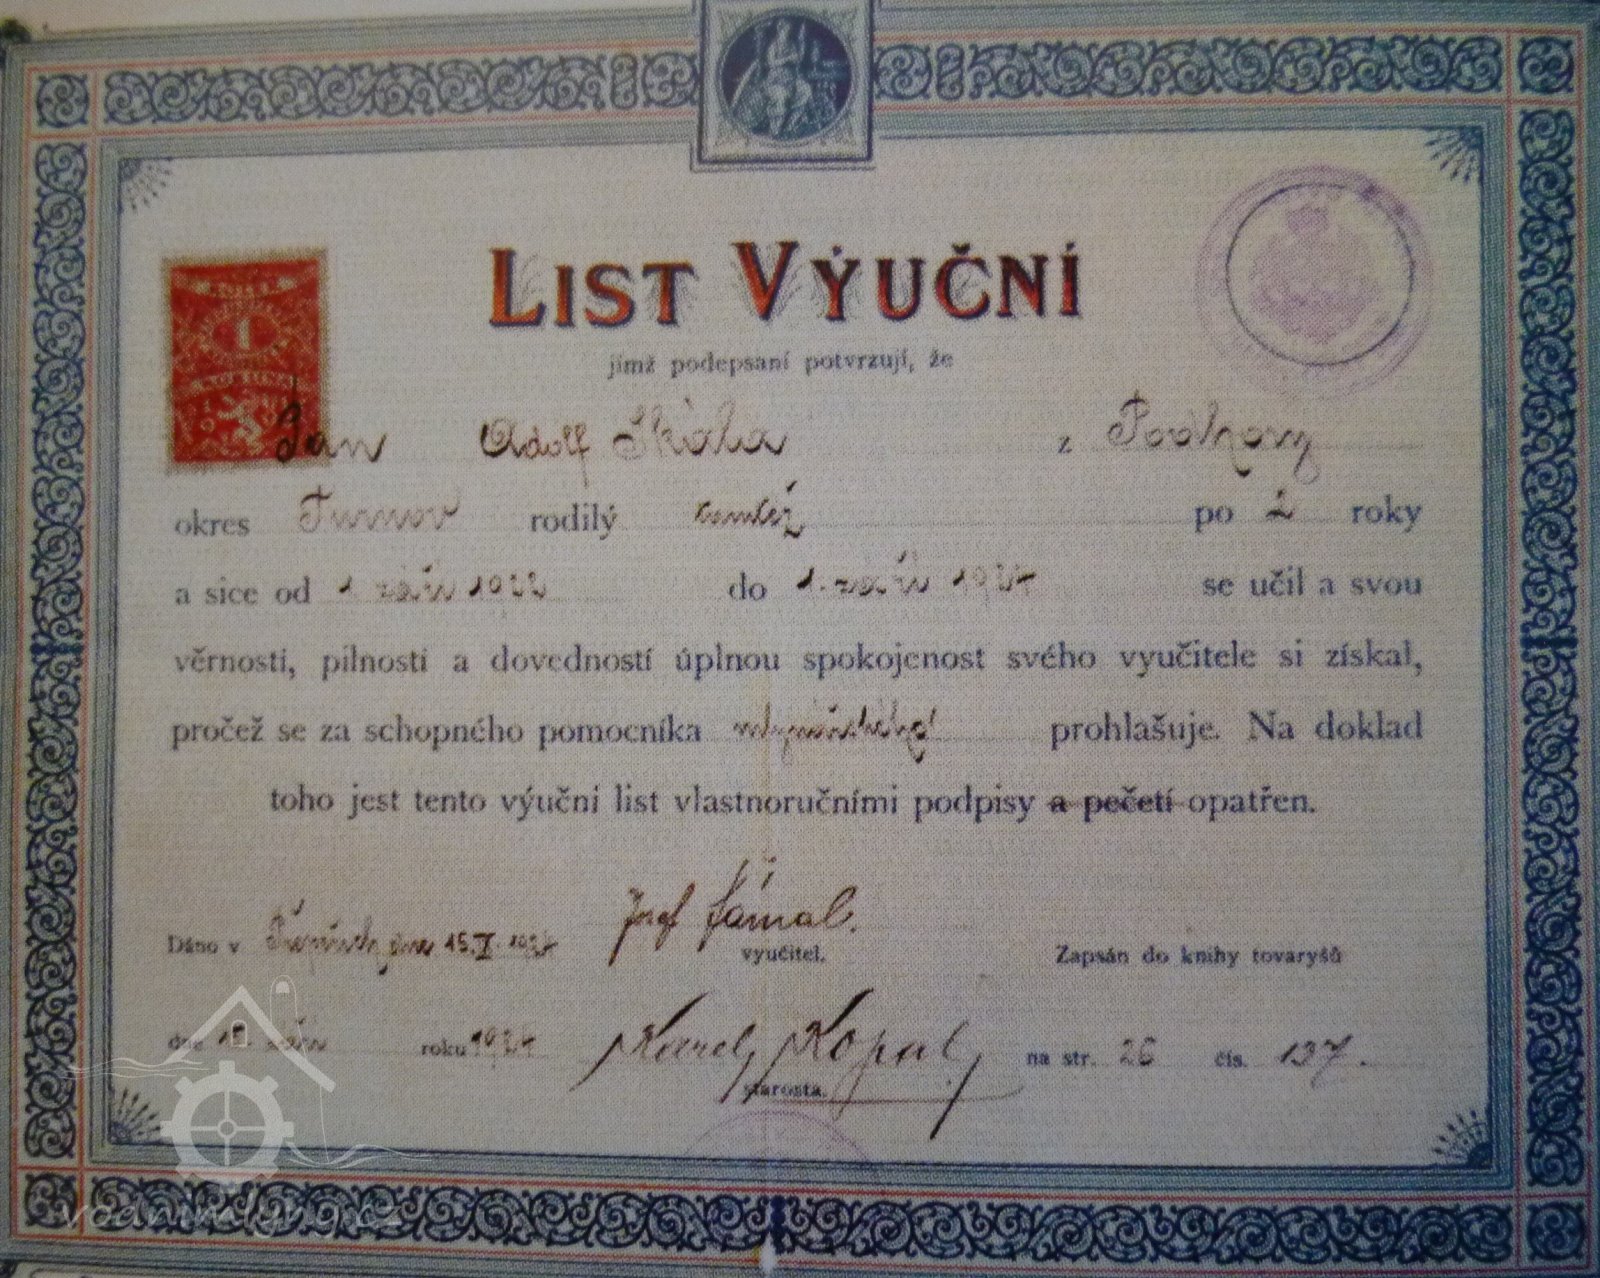 LIST VÝUČNÍ
jímž podepsaní potvrzují, že
1
Jan Adolf Skála z Podhory
okres Turnov rodilý tamtéž po 2 roky
a sice od 1. září 1922 do 1. září 1924 se učil a svou
věrností, pilností a dovedností úplnou spokojenost svého vyučitele si získal,
pročež se za schopného pomocníka mlynářského prohlašuje. Na doklad
toho jest tento výuční list vlastnoručními podpisy a pečetí opatřen.
Josef Šámal.
Dáno v dne 15. X. 1924 vyučitel. Zapsán do knihy tovaryšů
dne 15. září roku 1924 Karel Kopal na str. 26 čís. 137.
starosta.
vodnimlyny.cz